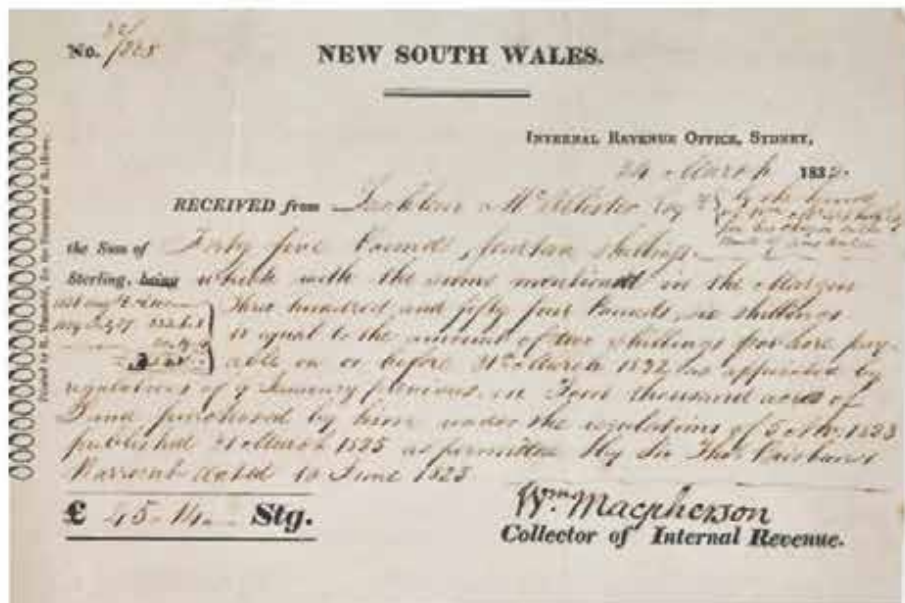 No.
NEW SOUTH WALES.
INTERNAL REVENUE OFFICE, SYDNEY,
24 March 1832.
RECEIVED from Lachlan McAlister Esqr
by the hands
the Sum of Forty five Pounds, fourteen shillings.
Sterling, being which with the sums mentioned in the Margin
Three hundred and fifty four Pounds, six shillings
is equal to the amount of two shillings per acre pay-
able on or before 31st March 1832 as appointed by
regulations of 9 January previous, on Four thousand acres of
Land purchased by him under the regulations of 5 Novr. 1823
published March 1825 as permitted by Sir Thos Brisbane's
Warrant dated 10 June 1825
£ 45.14. Stg.
Wm. Macpherson
Collector of Internal Revenue.